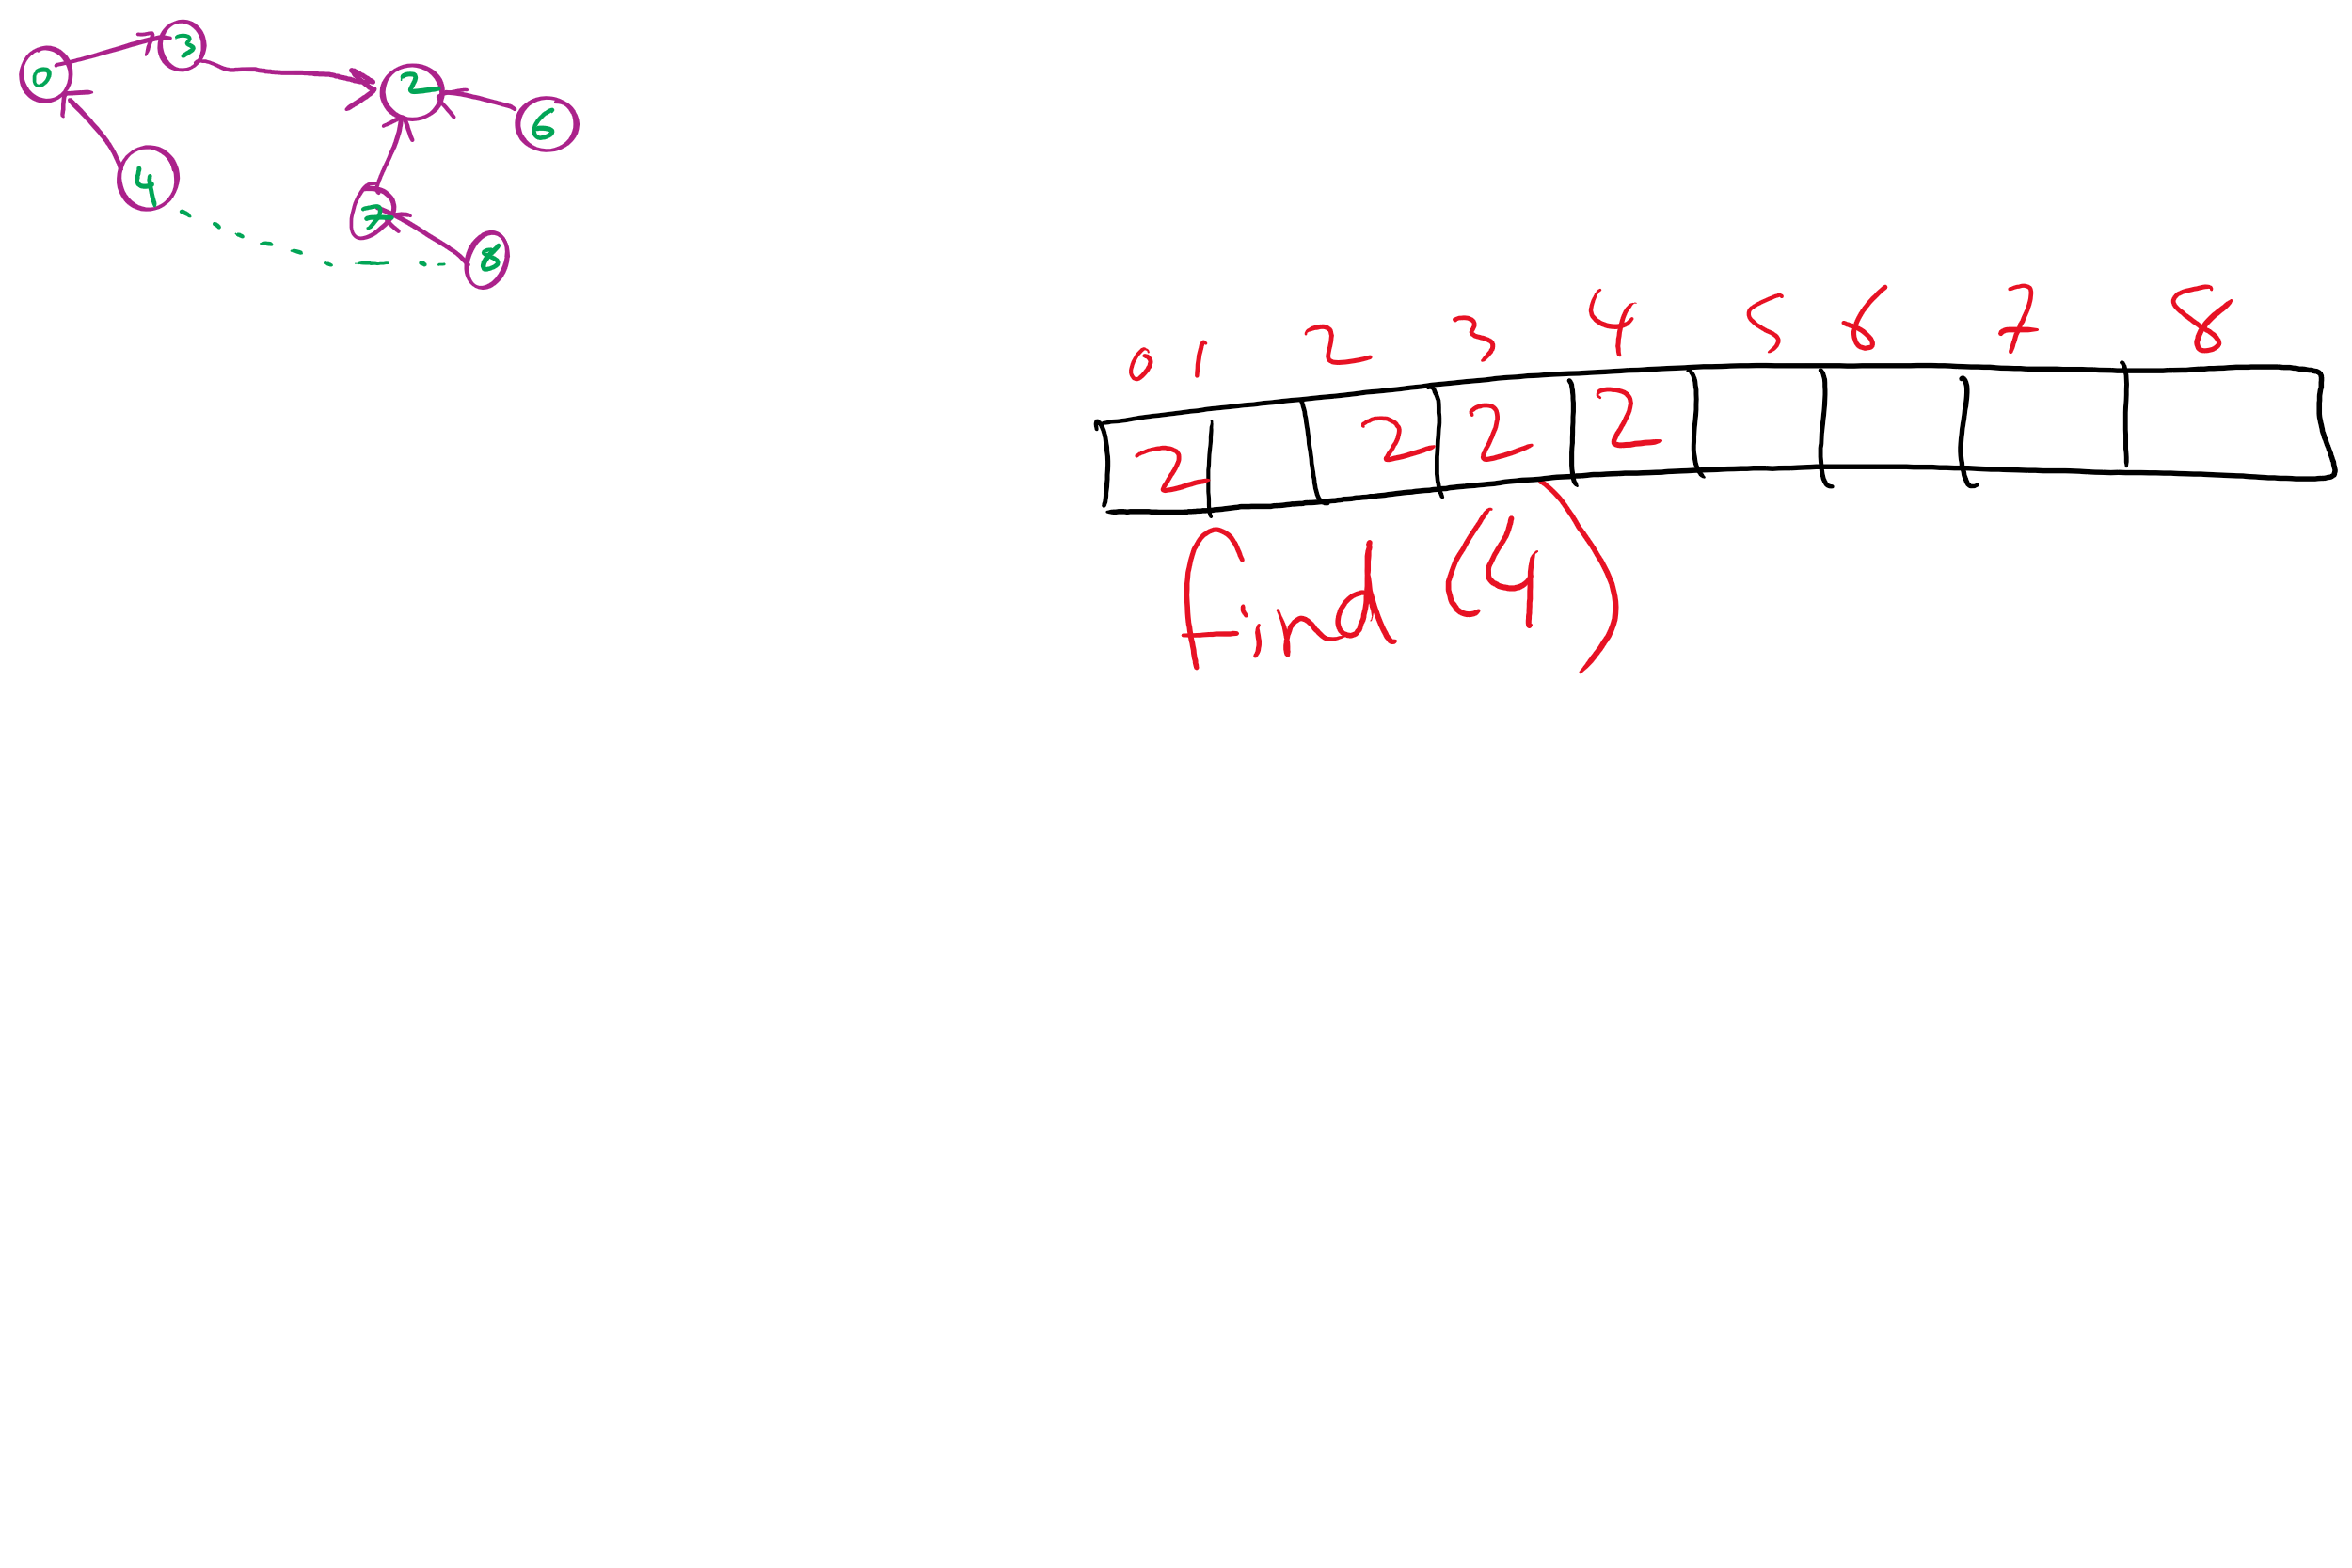 0 3 2 6
4 7 8
0 1 2 3 4 5 6 7 8
2 2 2 2
find (4)